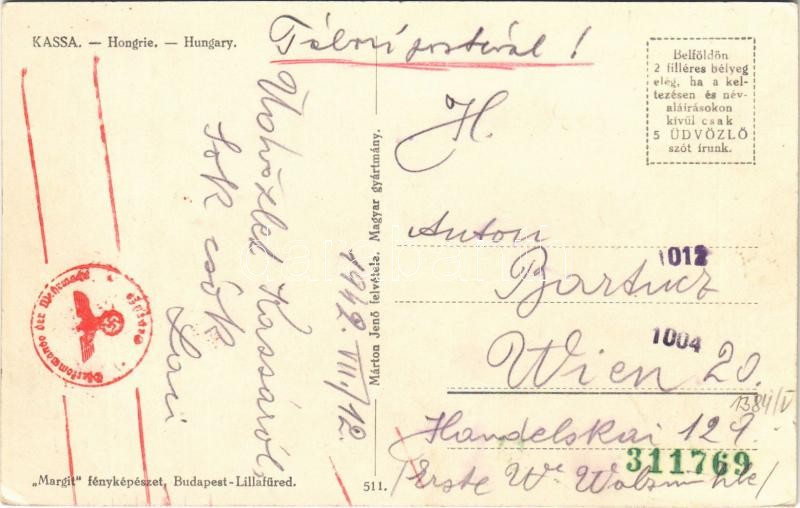 KASSA. — Hongrie. — Hungary.
Tábori postával!
Belföldön
2 filléres bélyeg
elég, ha a kel-
tezésen és név-
aláírásokon
kívül csak
5 ÜDVÖZLŐ
szót írunk.
Üdvözlet Kassáról
Sok csók
Laci
1942. VII/12.
Márton Jenő felvétele. Magyar gyártmány.
H.
Anton
Bartucz
Wien 20.
Handelskai 129.
/Erste W
1012
1004
1384/V
311769
Oberkommando der Wehrmacht
„Margit" fényképészet, Budapest-Lillafüred.
511.